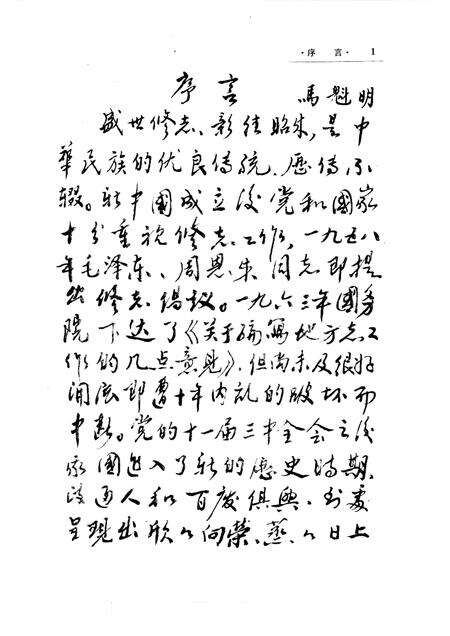 ·序 言· 1
序言 馬魁明
盛世修志、彰往昭来，是中
華民族的优良传統，历传不
辍。新中國成立後党和國家
十分重視修志工作，一九五八
年毛泽东、周恩来同志即提
出修志倡议。一九六三年國务
院下达了《关于编寫地方志工
作的几点意見》，但尚未及很好
開展即遭十年内乱的破坏而
中断。党的十一届三中全会之後
家國进入了新的历史時期，
政通人和百废俱興，到處
呈現出欣々向荣、蒸々日上